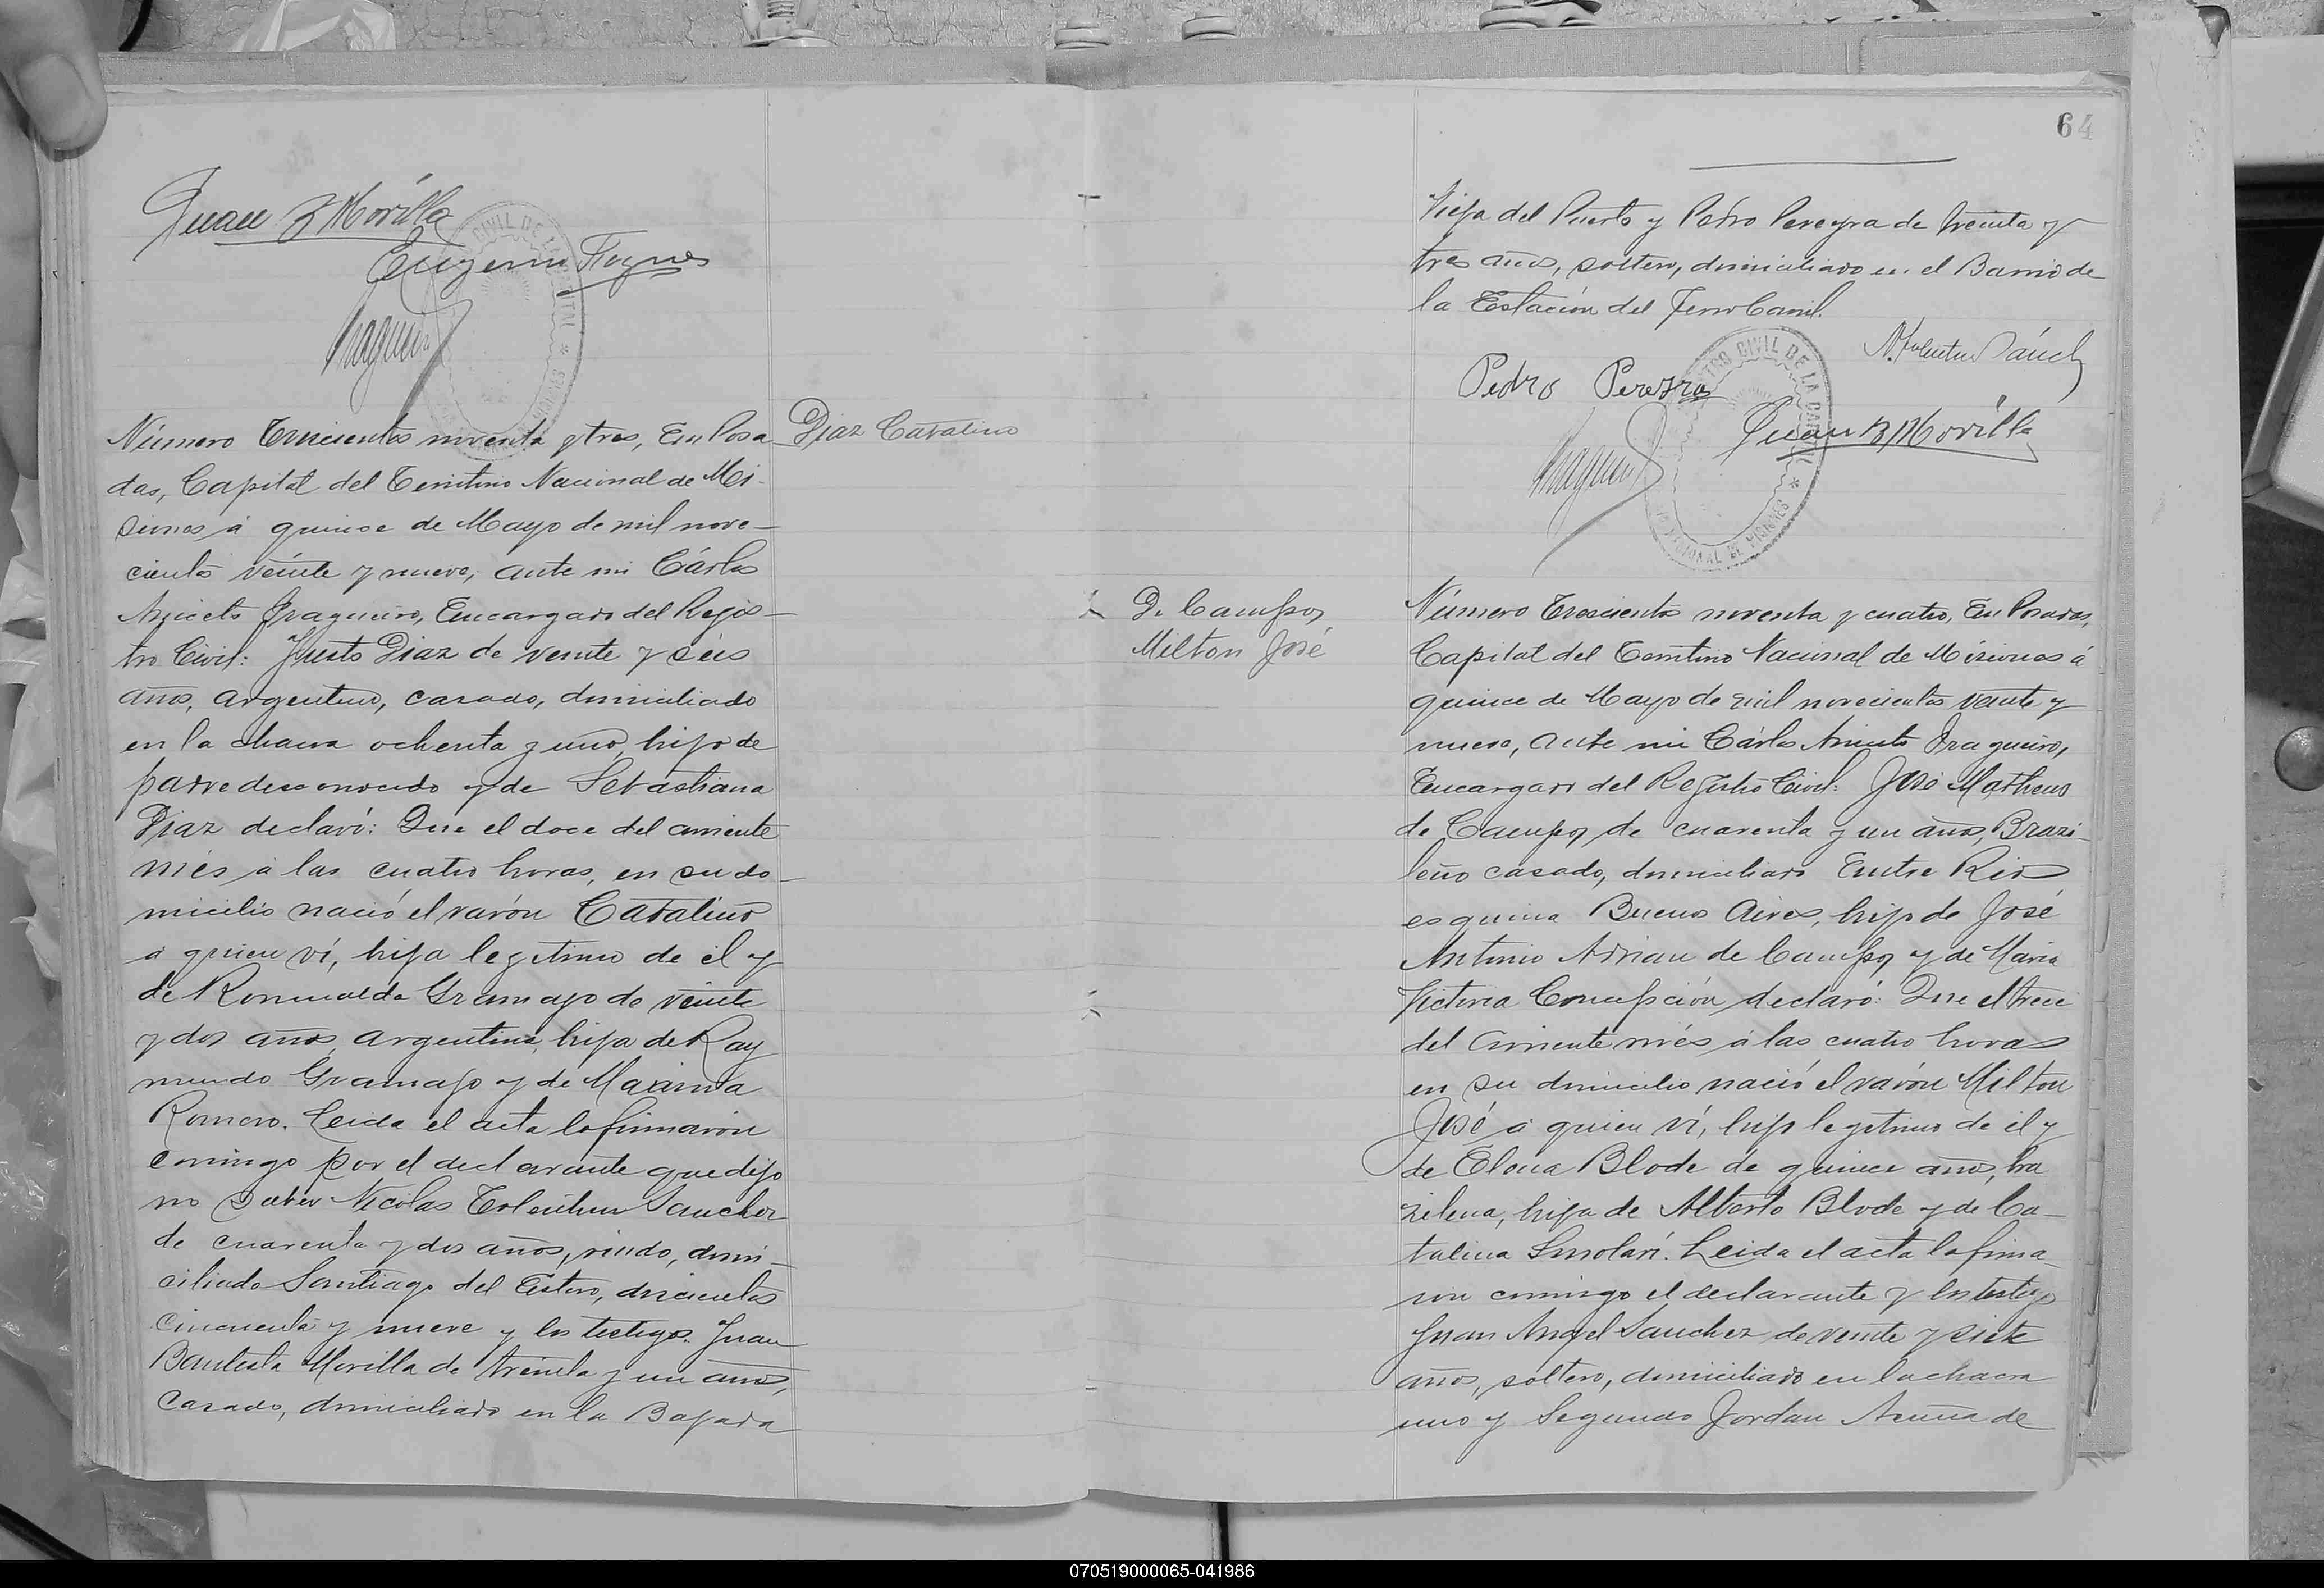 Juan B Morilla
Eugenio
Número Trescientos noventa y tres, En Posa-
das, Capital del Territorio Nacional de Mi-
siones á quince de Mayo de mil nove-
cientos veinte y nueve, ante mi Cárlos
Aniceto Fragueiro, Encargado del Regis-
tro Civil: Justo Diaz de veinte y séis
años, argentino, casado, domiciliado
en la chacra ochenta y uno, hijo de
padre desconocido y de Sebastiana
Diaz declaró: Que el doce del corriente
més á las cuatro horas, en su do-
micilio nació el varón Catalino
á quien ví, hijo legítimo de él y
de Romualda Gramajo de veinte
y dos años argentina, hija de Ray
mundo Gramajo y de Maxima
Romero. Leida el acta la firmaron
conmigo por el declarante que dijo
no saber Nicolas Tolentino Sanchez
de cuarenta y dos años, viudo, domi-
ciliado Santiago del Estero, doscientos
cincuenta y nueve y los testigos. Juan
Bautista Morilla de treinta y un años,
casado, domiciliado en la Bajada
Diaz Catalino
64
Vieja del Puerto y Pedro Pereyra de treinta y
tres años, soltero, domiciliado en el Barrio de
la Estación del Ferro Carril.
N. Tolentino Sánch
Pedro Pereyra
Juan B Morilla
REGISTRO CIVIL DE LA CAPITAL
NACIONAL DE MISIONES
D. Campos
Milton José
Número Trescientos noventa y cuatro, En Posadas,
Capital del Territorio Nacional de Misiones á
quince de Mayo de mil novecientos veinte y
nueve, ante mi Cárlos Aniceto Fragueiro,
Encargado del Registro Civil: José Matheus
de Campos de cuarenta y un años, Brazi-
leño casado, domiciliado Entre Rios
esquina Buenos Aires, hijo de José
Antonio Adrian de Campos y de Maria
Victoria Concepción declaró: Que el trece
del corriente més á las cuatro horas
en su domicilio nació el varón Milton
José á quien ví, hijo legítimo de él y
de Elena Blode de quince años, bra
zilena, hija de Alberto Blode y de Ca-
talina Smolari. Leida el acta la firma-
ron conmigo el declarante y los testigos
Juan Angel Sanchez de veinte y siete
años, soltero, domiciliado en la chacra
uno y Segundo Jordan Acuña de
070519000065-041986